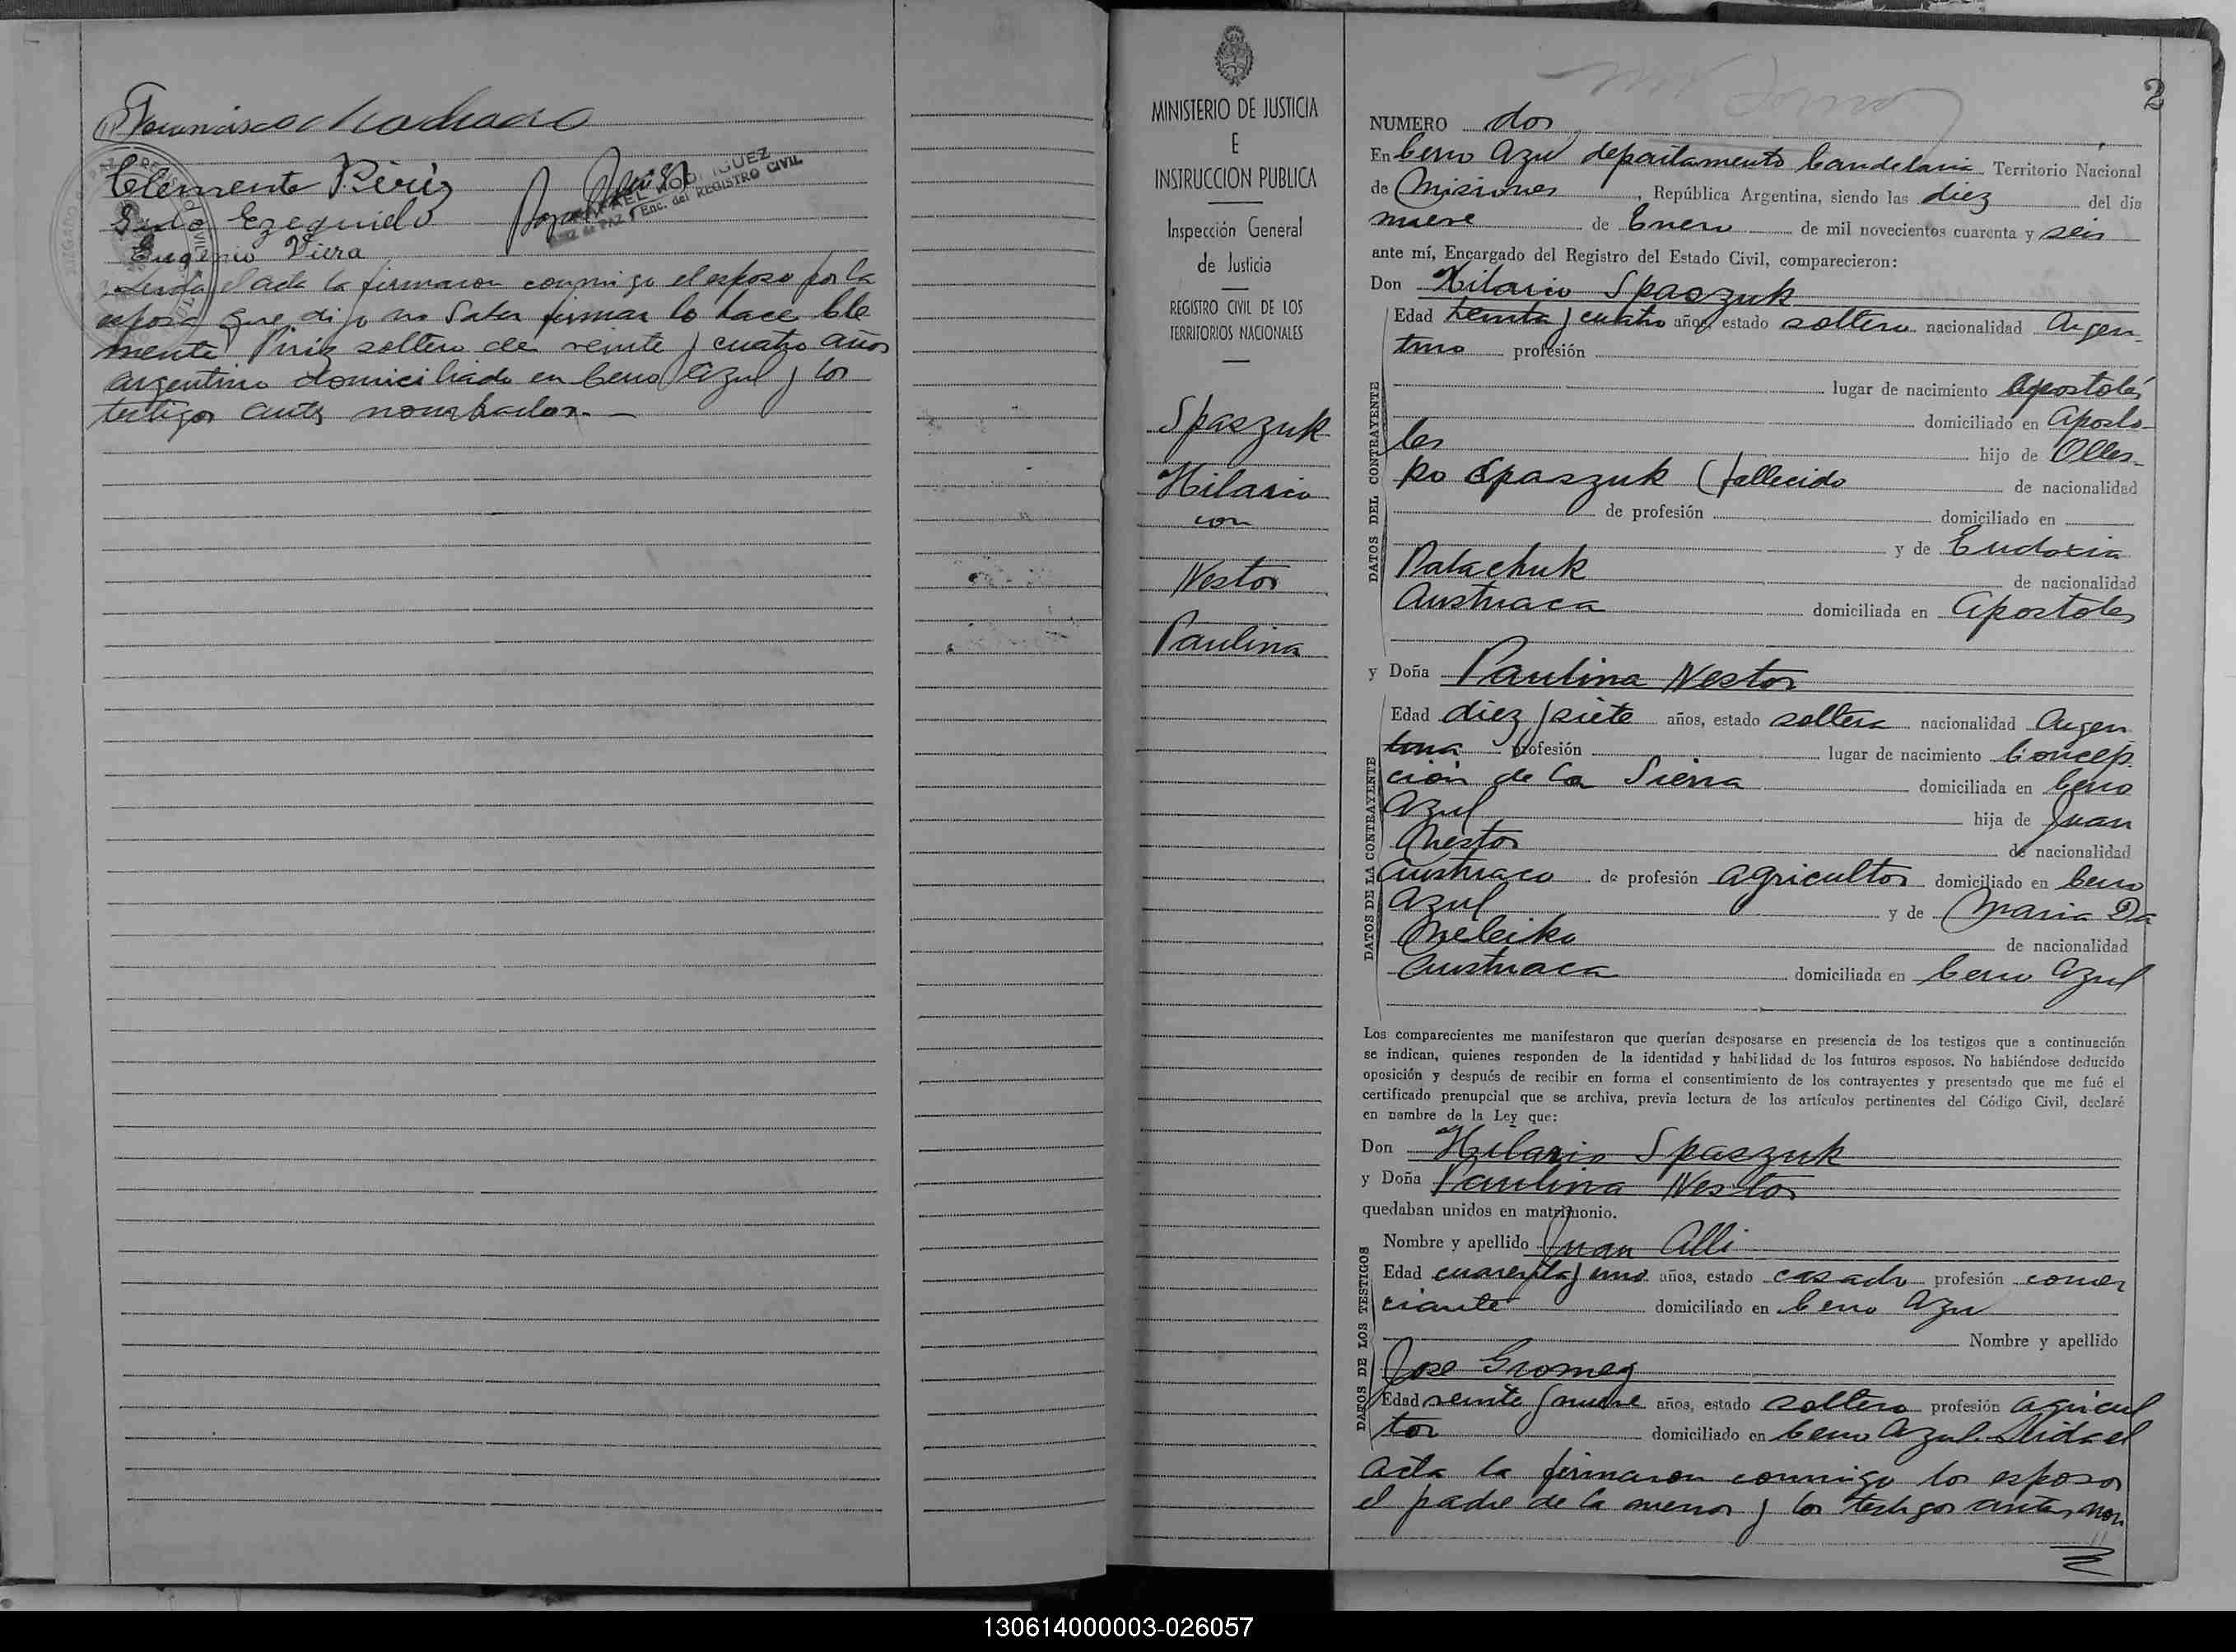 Francisco Machado
Clemente Piriz
Ezequiel
Eugenio Viera
RAFAEL RODRIGUEZ
JUEZ de PAZ y Enc. del REGISTRO CIVIL
Leida el acta la firmaron conmigo el esposo por la
esposa que dijo no saber firmar lo hace Cle
mente Piriz soltero de veinte y cuatro años
argentino domiciliado en Cerro Azul y los
testigos antes nombrados.—
MINISTERIO DE JUSTICIA
E
INSTRUCCION PUBLICA
Inspección General
de Justicia
REGISTRO CIVIL DE LOS
TERRITORIOS NACIONALES
Spaszuk
Hilario
con
Nestor
Paulina
2
NUMERO dos
En Cerro Azul departamento Candelaria Territorio Nacional
de Misiones, República Argentina, siendo las diez del día
nueve de Enero de mil novecientos cuarenta y seis
ante mí, Encargado del Registro del Estado Civil, comparecieron:
Don Hilario Spaszuk
DATOS DEL CONTRAYENTE
Edad treinta y cuatro años, estado soltero nacionalidad Argen-
tino profesión
lugar de nacimiento Apostoles
domiciliado en Aposto-
les hijo de Olles-
ko Spaszuk (fallecido de nacionalidad
de profesión domiciliado en
y de Eudoxia
Palachuk de nacionalidad
Austriaca domiciliada en Apostoles
y Doña Paulina Nestor
DATOS DE LA CONTRAYENTE
Edad diez y siete años, estado soltera nacionalidad Argen
tina profesión lugar de nacimiento Concep-
ción de la Sierra domiciliada en Cerro
Azul hija de Juan
Nestor de nacionalidad
Austriaco de profesión agricultor domiciliado en Cerro
Azul y de Maria Da
meleiko de nacionalidad
Austriaca domiciliada en Cerro Azul
Los comparecientes me manifestaron que querían desposarse en presencia de los testigos que a continuación
se indican, quienes responden de la identidad y habilidad de los futuros esposos. No habiéndose deducido
oposición y después de recibir en forma el consentimiento de los contrayentes y presentado que me fué el
certificado prenupcial que se archiva, previa lectura de los artículos pertinentes del Código Civil, declaré
en nombre de la Ley que:
Don Hilario Spaszuk
y Doña Paulina Nestor
quedaban unidos en matrimonio.
DATOS DE LOS TESTIGOS
Nombre y apellido Juan Alli
Edad cuarenta y uno años, estado casado profesión comer
ciante domiciliado en Cerro Azul
Nombre y apellido
Jose Gromez
Edad veinte y nueve años, estado soltero profesión agricul
tor domiciliado en Cerro Azul. Leida el
acta la firmaron conmigo los esposos
el padre de la menor y los testigos antes nom
130614000003-026057